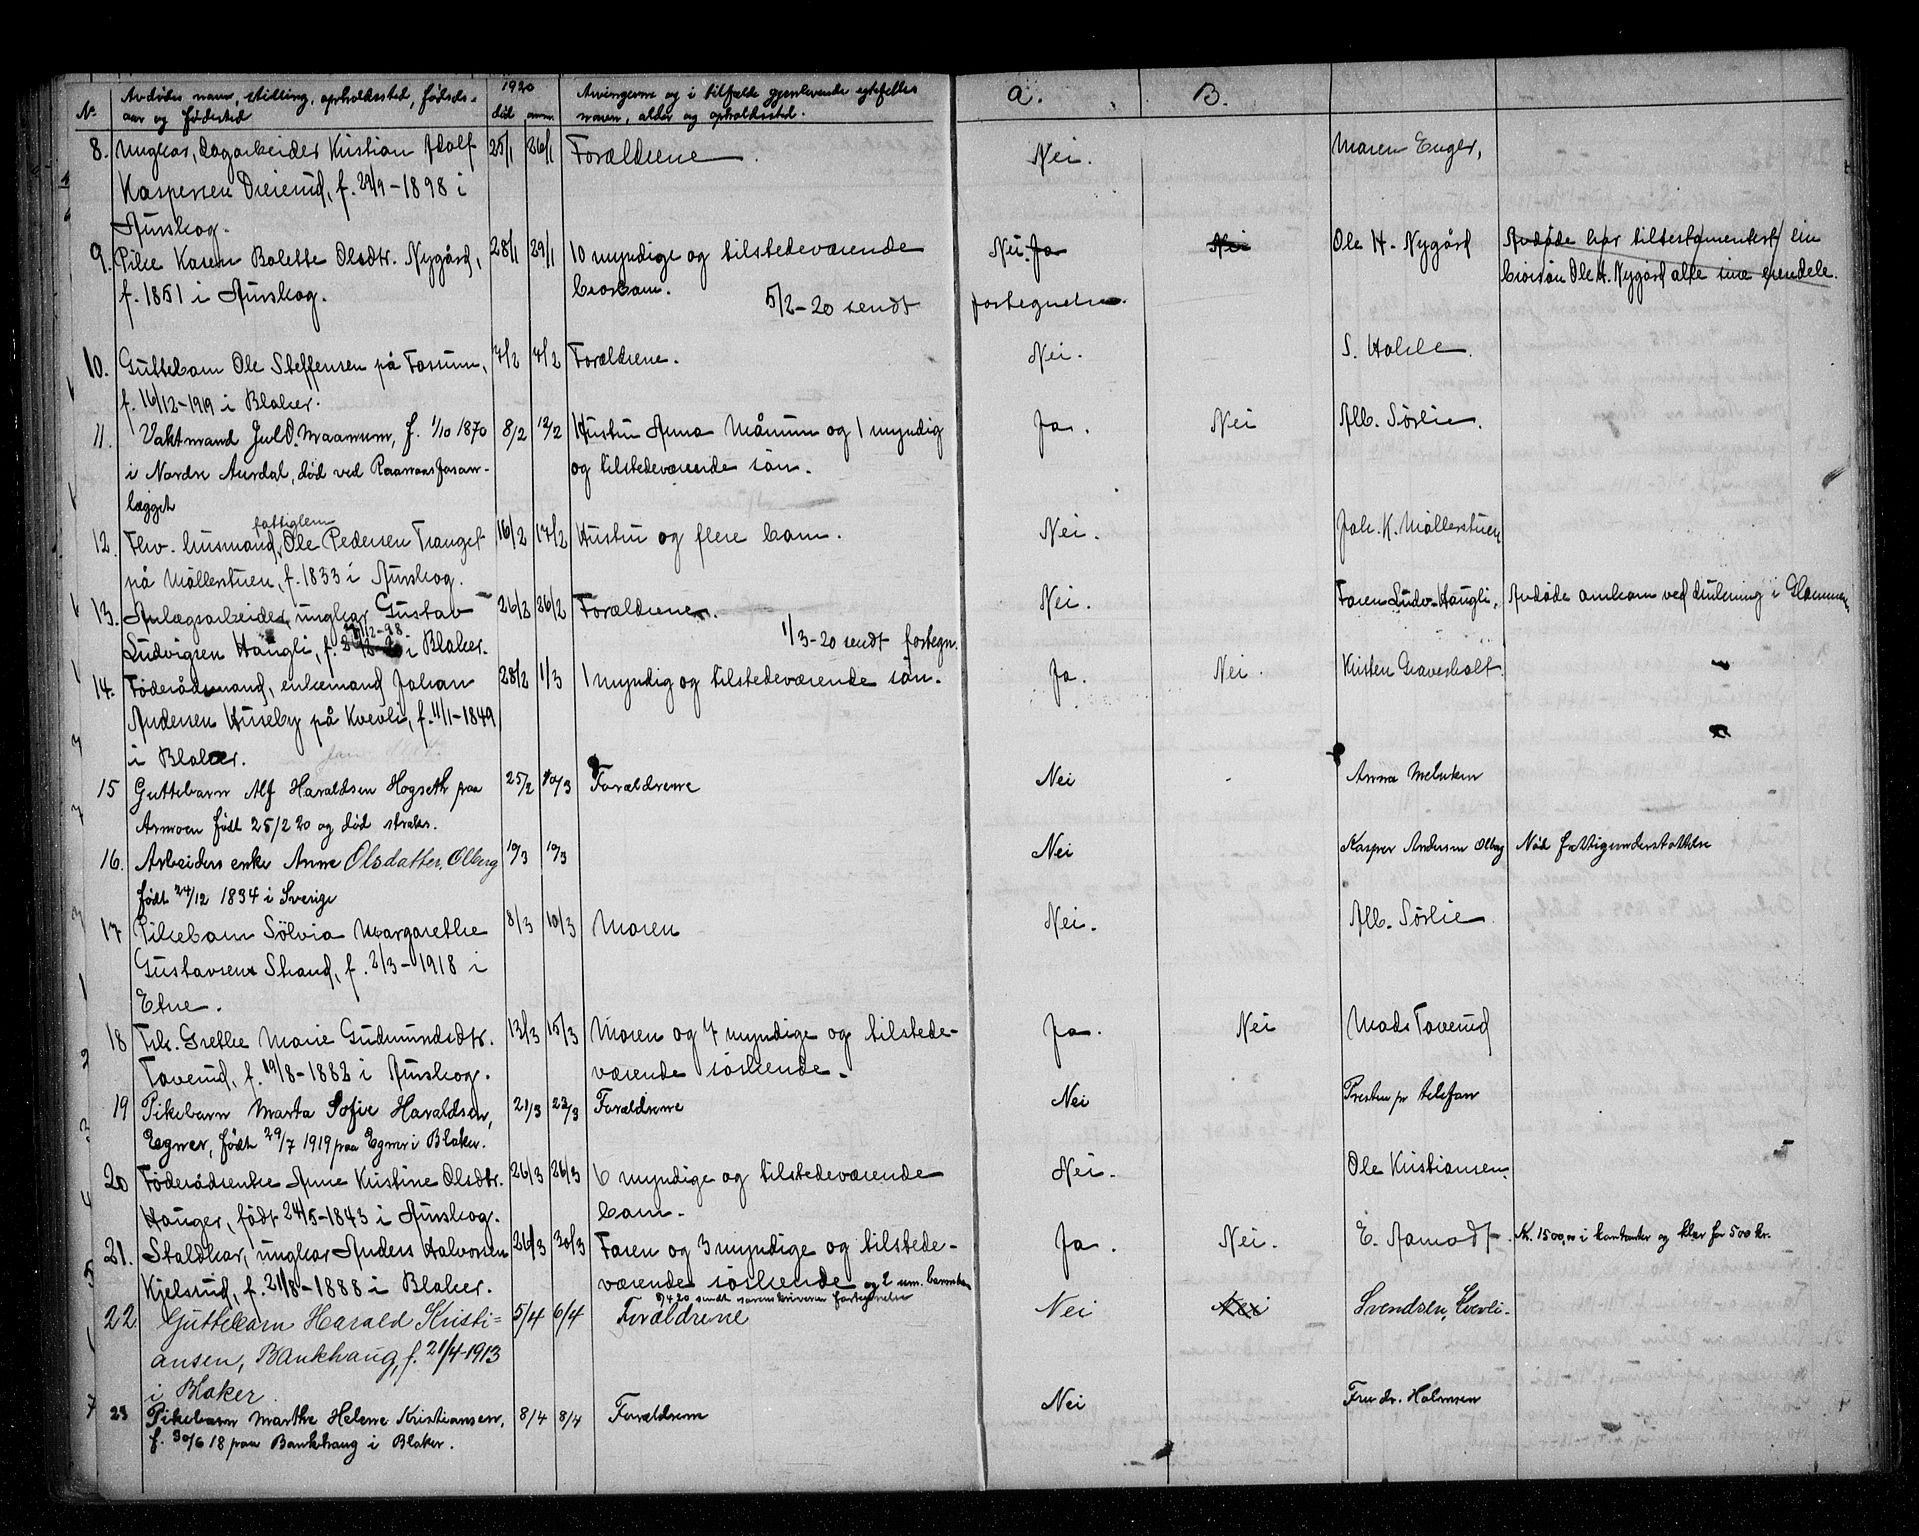 No Avdødes navn, stilling, opholdssted, fødsels- 1920 Arvingerne og i tilfælde gjenlevende egtefelles a. B.
aar og fødested død anm. navn, alder og opholdssted.
8. Ungkar, dagarbeider Kristian Adolf 25/1 26/1 Forældrene Nei. Maren Enger,
Kaspersen Dreierud, f. 29/9-1898 i
Aurskog.
9. Pike Karen Bolette Olsdtr. Nygård, 28/1 29/1 10 myndige og tilstedeværende Nei. Ja Nei Ole H. Nygård Avdøde har tiltestamentert sin
f. 1851 i Aurskog. brorbarn. 5/2-20 sendt fortegnelse. brorsøn Ole H. Nygård alle sine eiendele.
10. Guttebarn Ole Steffensen på Fossum, 7/2 7/2 Forældrene. Nei. S. Holde.
f. 16/12-1919 i Blaker.
11. Vaktmand Jul. O. Maanum, f. 1/10 1870 8/2 12/2 Hustru Anna Månum og 1 myndig Ja. Nei Alb. Sørlie.
i Nordre Aurdal, død ved Raanaasfosan- og tilstedeværende søn.
lægget
fattiglem
12. Fhv. husmand, Ole Pedersen Tranget 16/2 17/2 Hustru og flere barn. Nei. Joh. K. Møllerstuen
på Møllerstuen, f. 1833 i Aurskog.
13. Anlægsarbeider, ungkar Gustav 26/2 26/2 Forældrene. Nei. Faren Ludv. Haugli, Avdøde omkom ved drukning i Glommen
12-98
Ludvigsen Haugli, f. i Blaker. 1/3-20 sendt fortegn.
14. Føderådsmand, enkemand Johan 28/2 1/3 1 myndig og tilstedeværende søn. Ja. Nei. Kristen Gravesholt.
Andersen Huseby på Kvevli, f. 11/1-1849
i Blaker.
15 Guttebarn Alf Haraldsen Hogseth paa 25/2 10/3 Forældrerne Nei Anna Melnken
Asmoen født 25/2 20 og død straks.
16. Arbeiders enke Anne Olsdatter, Olberg 10/3 10/3 Nei Kasper Andersen Olberg Nød fattigunderstøttelse
født 24/12 1834 i Sverige
17 Pikebarn Sölvia Margarethe 8/3 10/3 Moren Nei. Alb. Sørlie.
Gustavsen Strand, f. 2/3-1918 i
Etne.
18 Frk. Grethe Marie Gudmundsdtr. 13/3 15/3 Moren og 4 myndige og tilstede- Ja. Nei Mads Toverud
Toverud, f. 19/8-1882 i Aurskog. værende søskende.
19 Pikebarn Marta Sofie Haraldsen, 21/3 23/3 Forældrerne Nei Presten pr telefon
Egner, født 29/7 1919 paa Egner i Blaker.
20 Føderådsenke Anne Kristine Olsdtr. 26/3 26/3 6 myndige og tilstedeværende Nei. Ole Kristiansen.
Hauger, født 24/5-1843 i Aurskog. barn.
21. Staldkar, ungkar Anders Halvorsen 26/3 30/3 Faren og 3 myndige og tilstede- Ja. Nei. E. Aamodt. Kr. 1500,00 i kontanter og klær for 500 kr.
Kjelsrud, f. 21/8-1888 i Blaker. værende søskende og 2 um. barnebarn
9/4 20 sendt sorenskriveren fortegnelse
22 Guttebarn Harald Kristi= 5/4 6/4 Forældrene Nei Nei Svendsen, Kvevli.
ansen, Bankhaug, f. 21/4-1913
i Blaker.
23 Pikebarn Marthe Helene Kristiansen, 8/4 8/4 Forældrerne Nei Fru dr. Holmsen
f. 30/6 18 paa Bankhaug i Blaker.